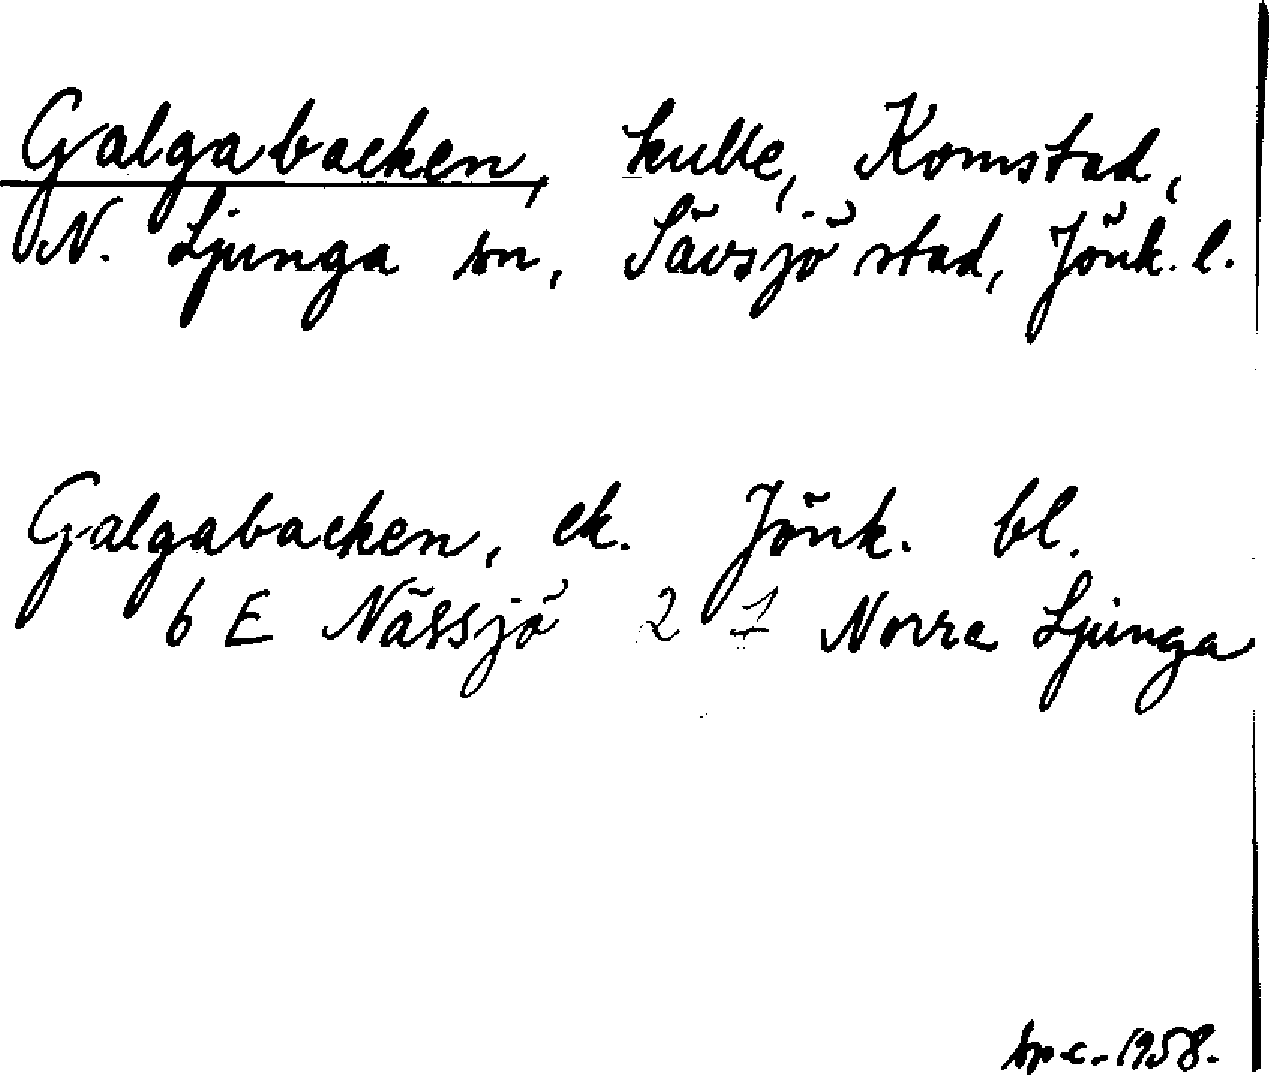 Galgabacken, kulle, Komstad,
N. Ljunga sn, Sävsjö stad, Jönk. l.
Galgabacken, ek. Jönk. bl.
6 E Nässjö 2 1 Norra Ljunga
1958.